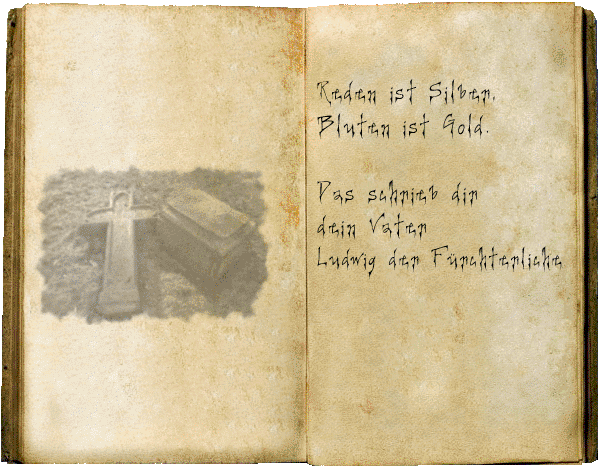 Reden ist Silber,
Bluten ist Gold.
Das schrieb dir
dein Vater
Ludwig der Fürchterliche